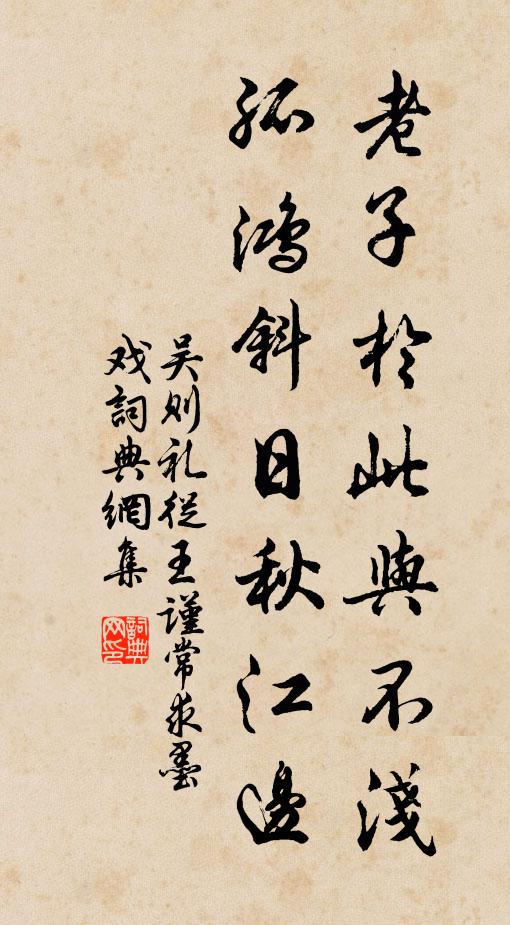 老子於此興不淺
孤鴻斜日秋江邊
吴则礼從王謹常求墨
戏詞典網集
詞典网印